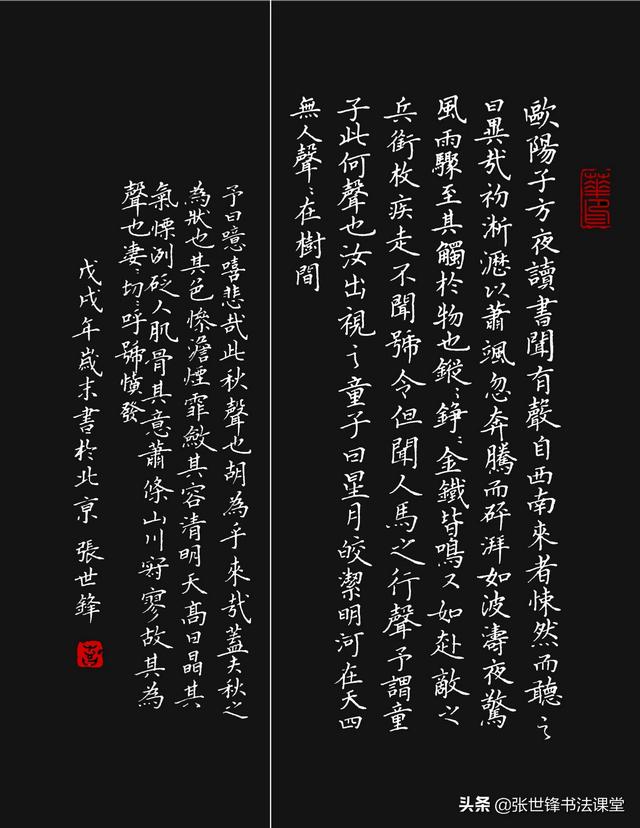 歐陽子方夜讀書聞有聲自西南來者悚然而聽之
曰異哉初淅瀝以蕭颯忽奔騰而砰湃如波濤夜驚
風雨驟至其觸於物也鏦〻錚〻金鐵皆鳴又如赴敵之
兵銜枚疾走不聞號令但聞人馬之行聲予謂童
子此何聲也汝出視之童子曰星月皎潔明河在天四
無人聲〻在樹間
予曰噫嘻悲哉此秋聲也胡為乎來哉蓋夫秋之
為狀也其色慘澹煙霏斂其容清明天高日晶其
氣慄冽砭人肌骨其意蕭條山川寂寥故其為
聲也凄〻切〻呼號憤發
戊戌年歲末書於北京 張世鋒
头条 @张世锋书法课堂